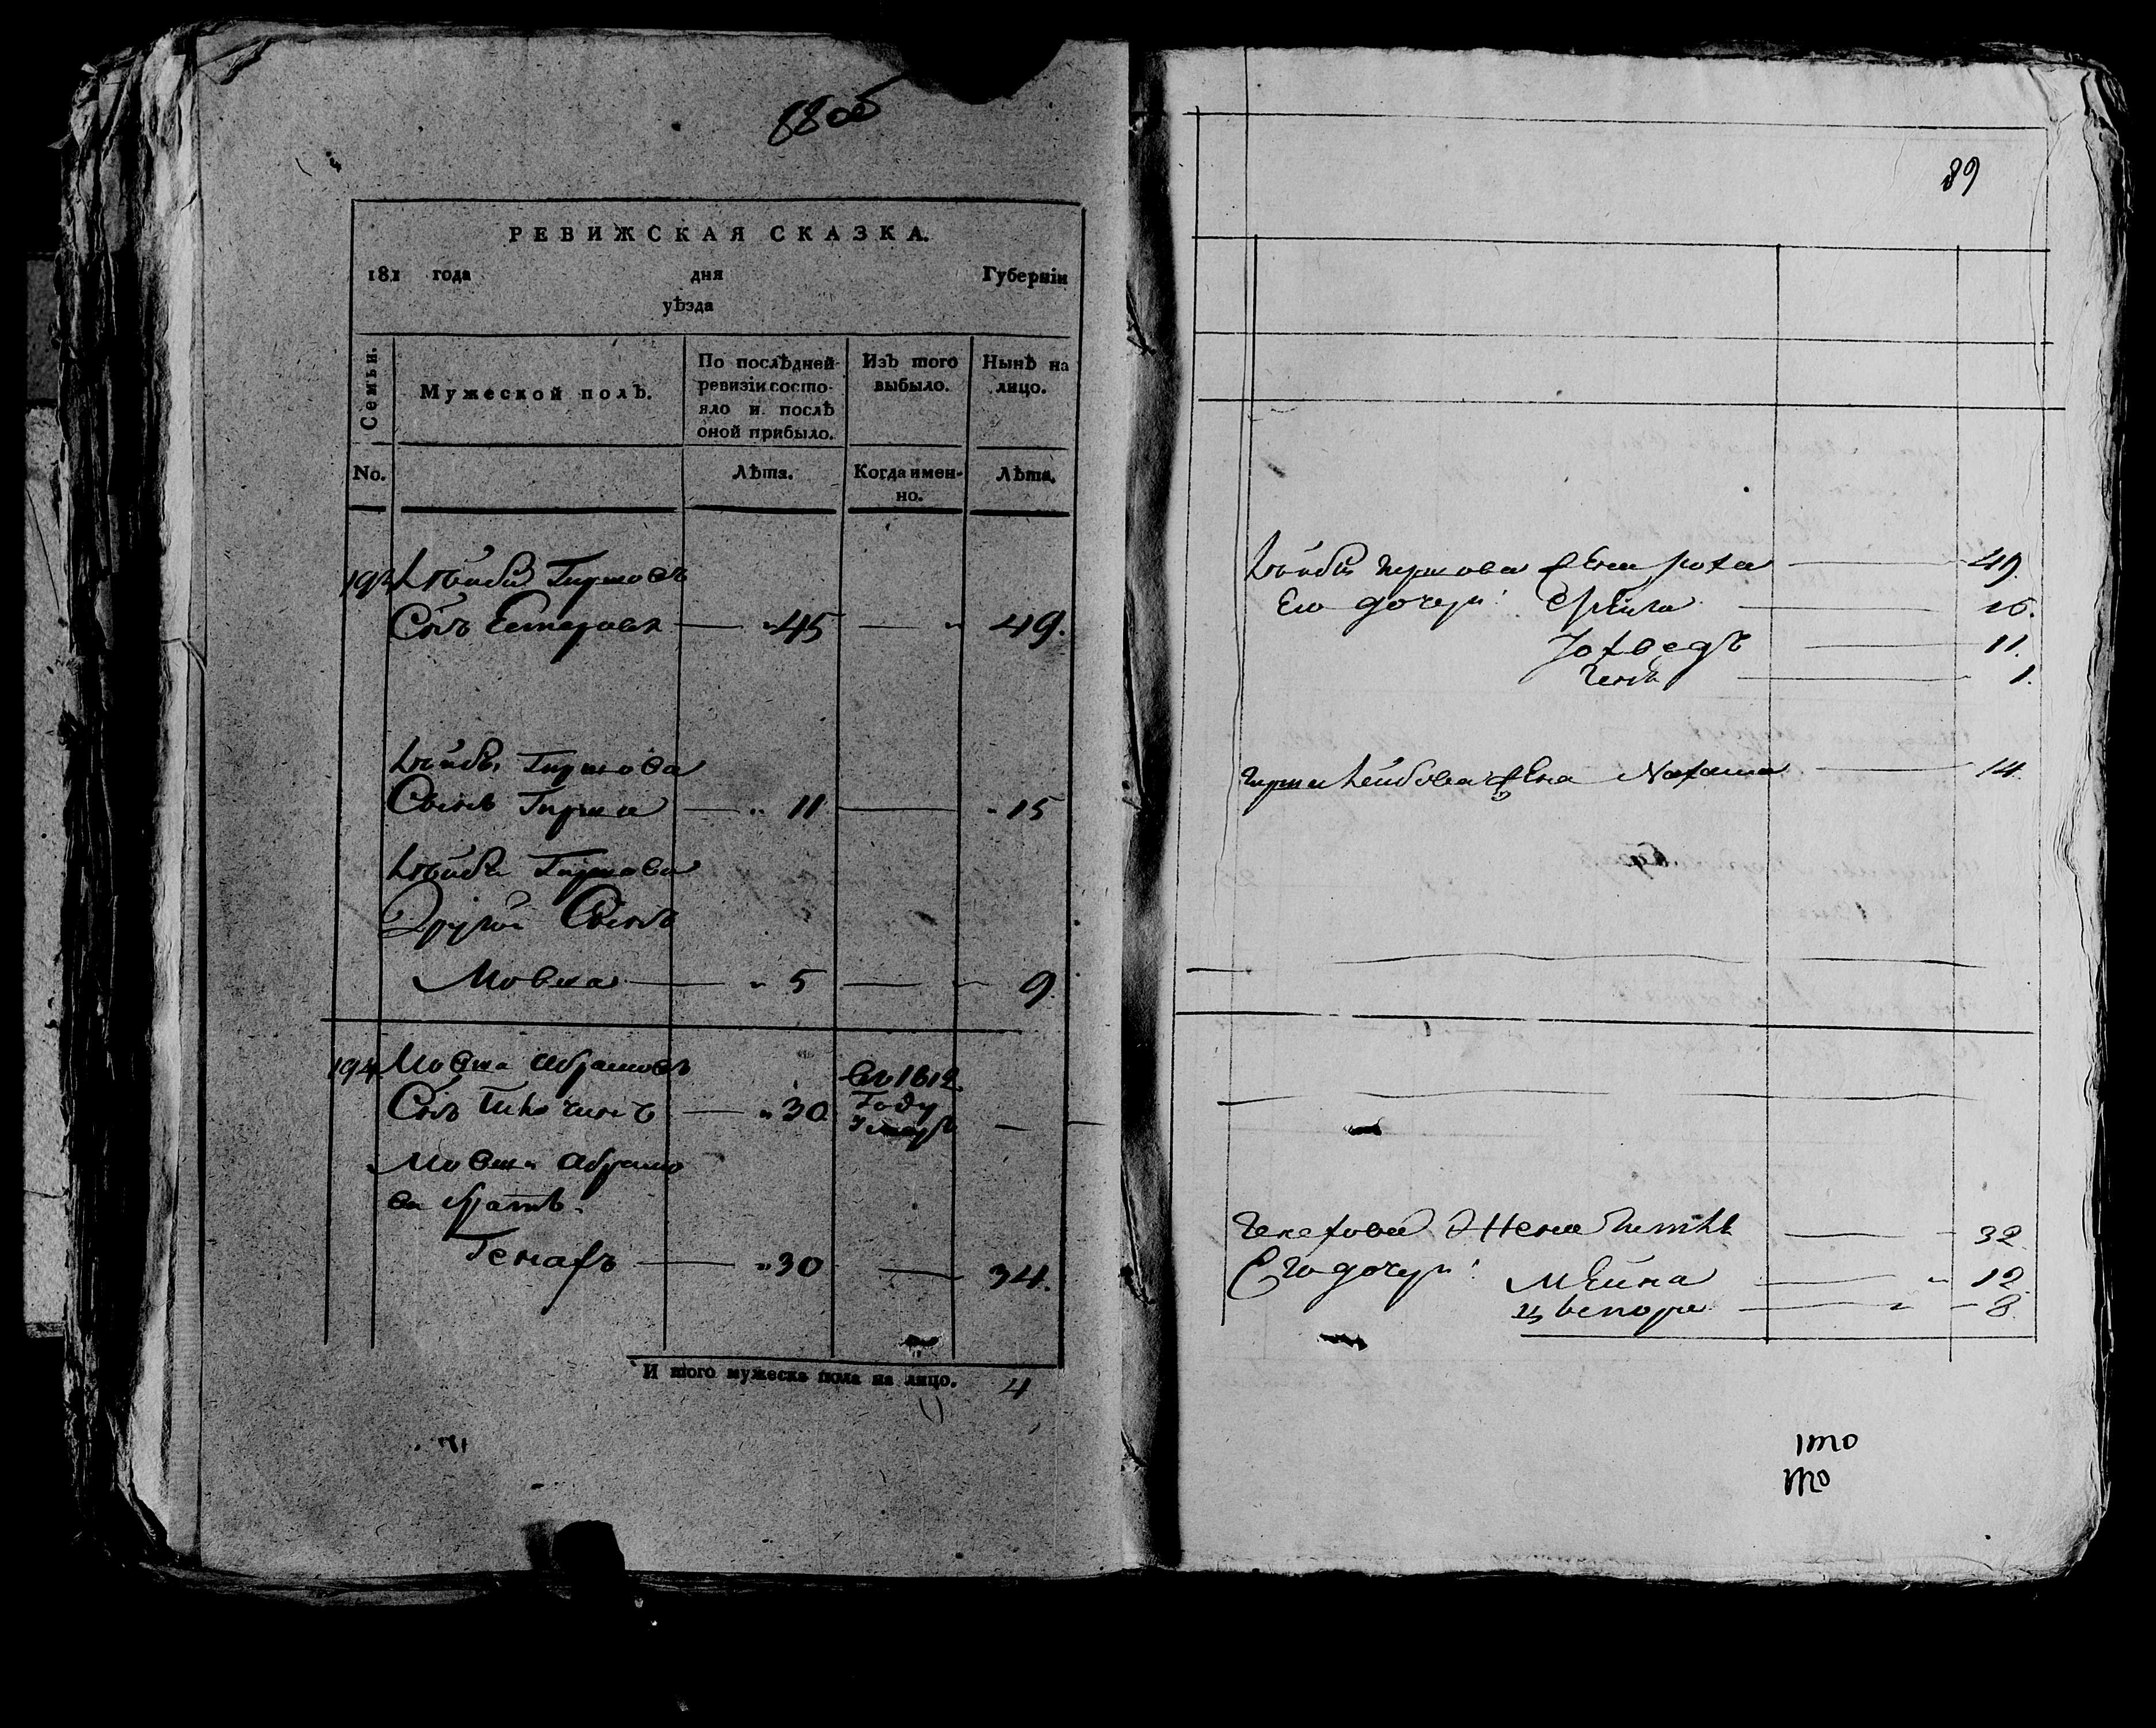 88об
РЕВИЖСКАЯ СКАЗКА.
181 года дня Губернїи
уѣзда
Семьи.
Мужеской полъ.
По послѣдней ревизїи состо-яло и послѣ оной прибыло.
Изъ того выбыло.
Нынѣ на лицо.
No.
Лѣта.
Когда имен-но.
Лѣта.
193 Лѣйба Гиршовъ
Сынъ 45 49.
Лѣйбы Гиршова
Сынъ Гирша 11 15
Лѣйбы Гиршова
Другой Сынъ
Мовша 5 9.
194 Мовша Абрамовъ въ 1812
Сынъ 30 Году
умеръ
Мовши Абрамо
ва братъ
Генахъ 30 34.
И того мужеска пола на лицо. 4
89
Лѣйбы Гиршова жена Рохла 49.
Его дочери: Фрейда 16.
Іохведъ 11.
1.
Гирши Лейбова жена Нахама 14.
Генахова жена 32
Его дочери: Мѣйна 12.
Цвепора 8.